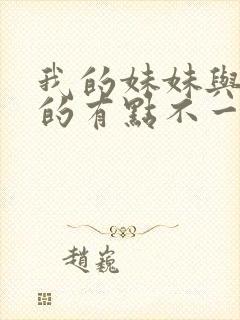 我的妹妹與
的有點不一
趙巍